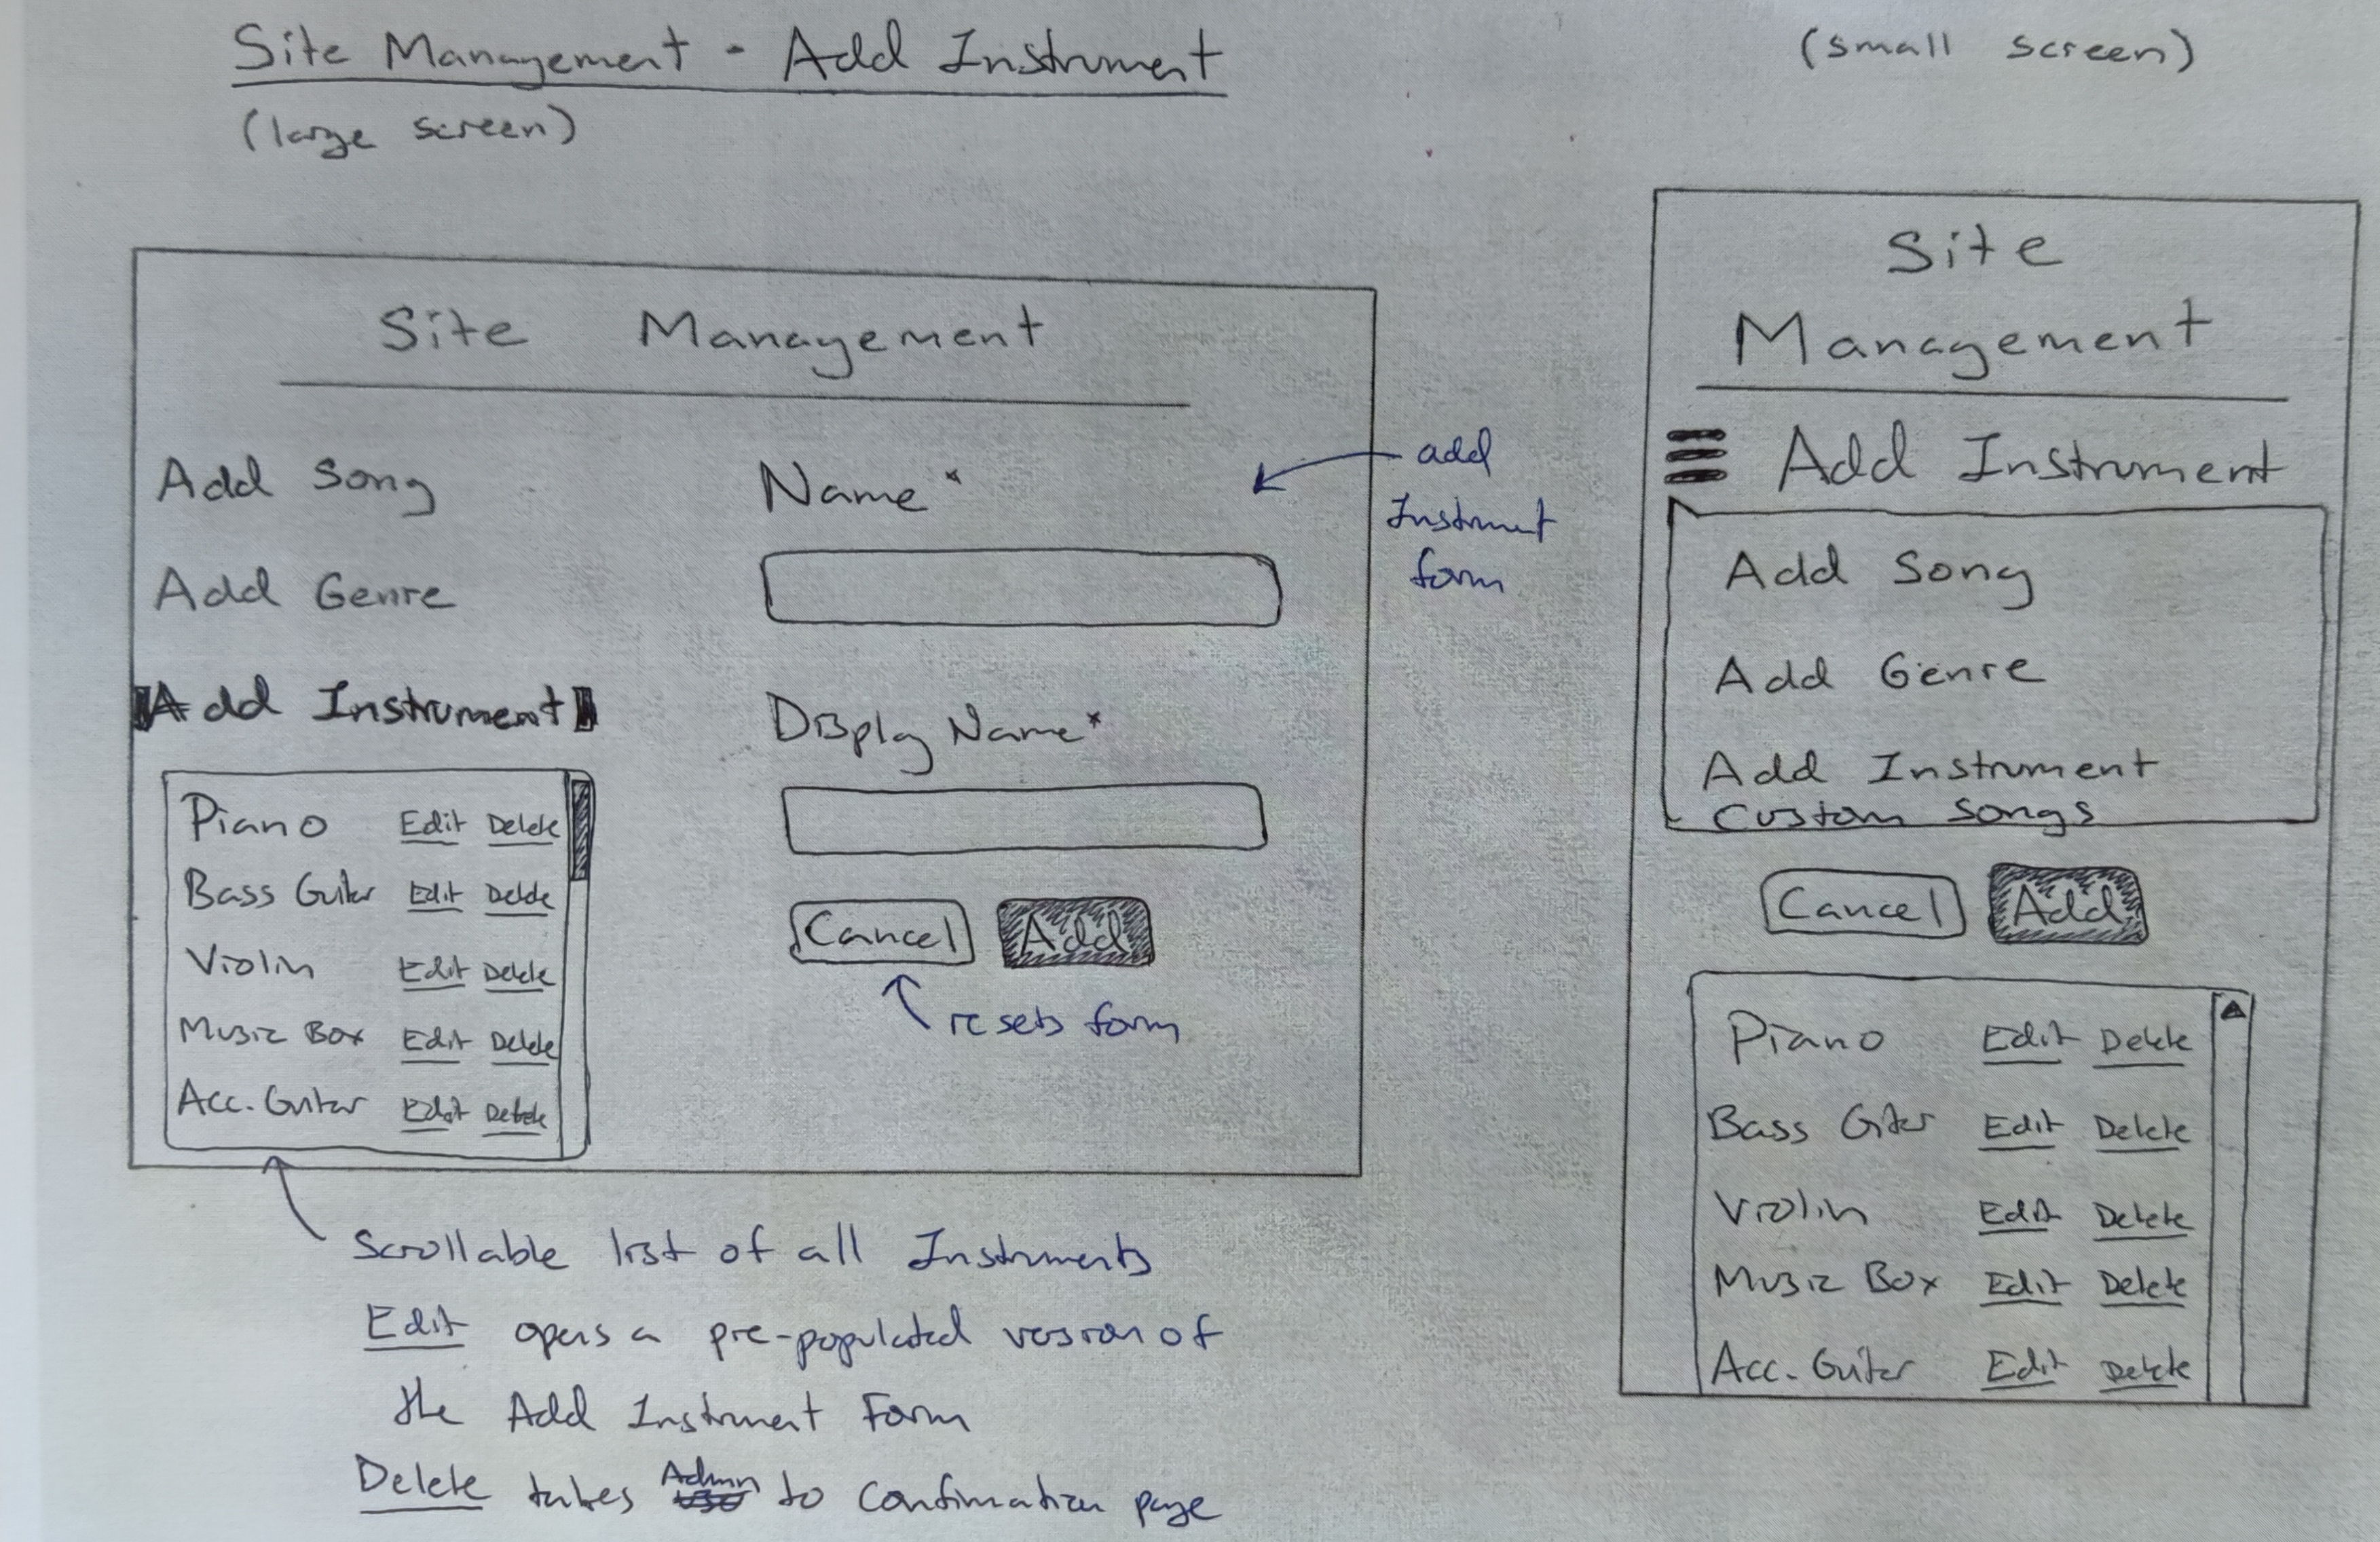 Site Management - Add Instrument
(large screen)
Site Management
Add Song
Add Genre
Add Instrument
Piano Edit Delete
Bass Guitar Edit Delete
Violin Edit Delete
Music Box Edit Delete
Acc. Guitar Edit Delete
Name*
Display Name*
Cancel Add
resets form
add
Instrument
form
Scrollable list of all Instruments
Edit opens a pre-populated version of
the Add Instrument Form
Delete takes Admin to confirmation page
(small screen)
Site
Management
Add Instrument
Add Song
Add Genre
Add Instrument
Custom Songs
Cancel Add
Piano Edit Delete
Bass Giter Edit Delete
Violin Edit Delete
Music Box Edit Delete
Acc. Guitar Edit Delete